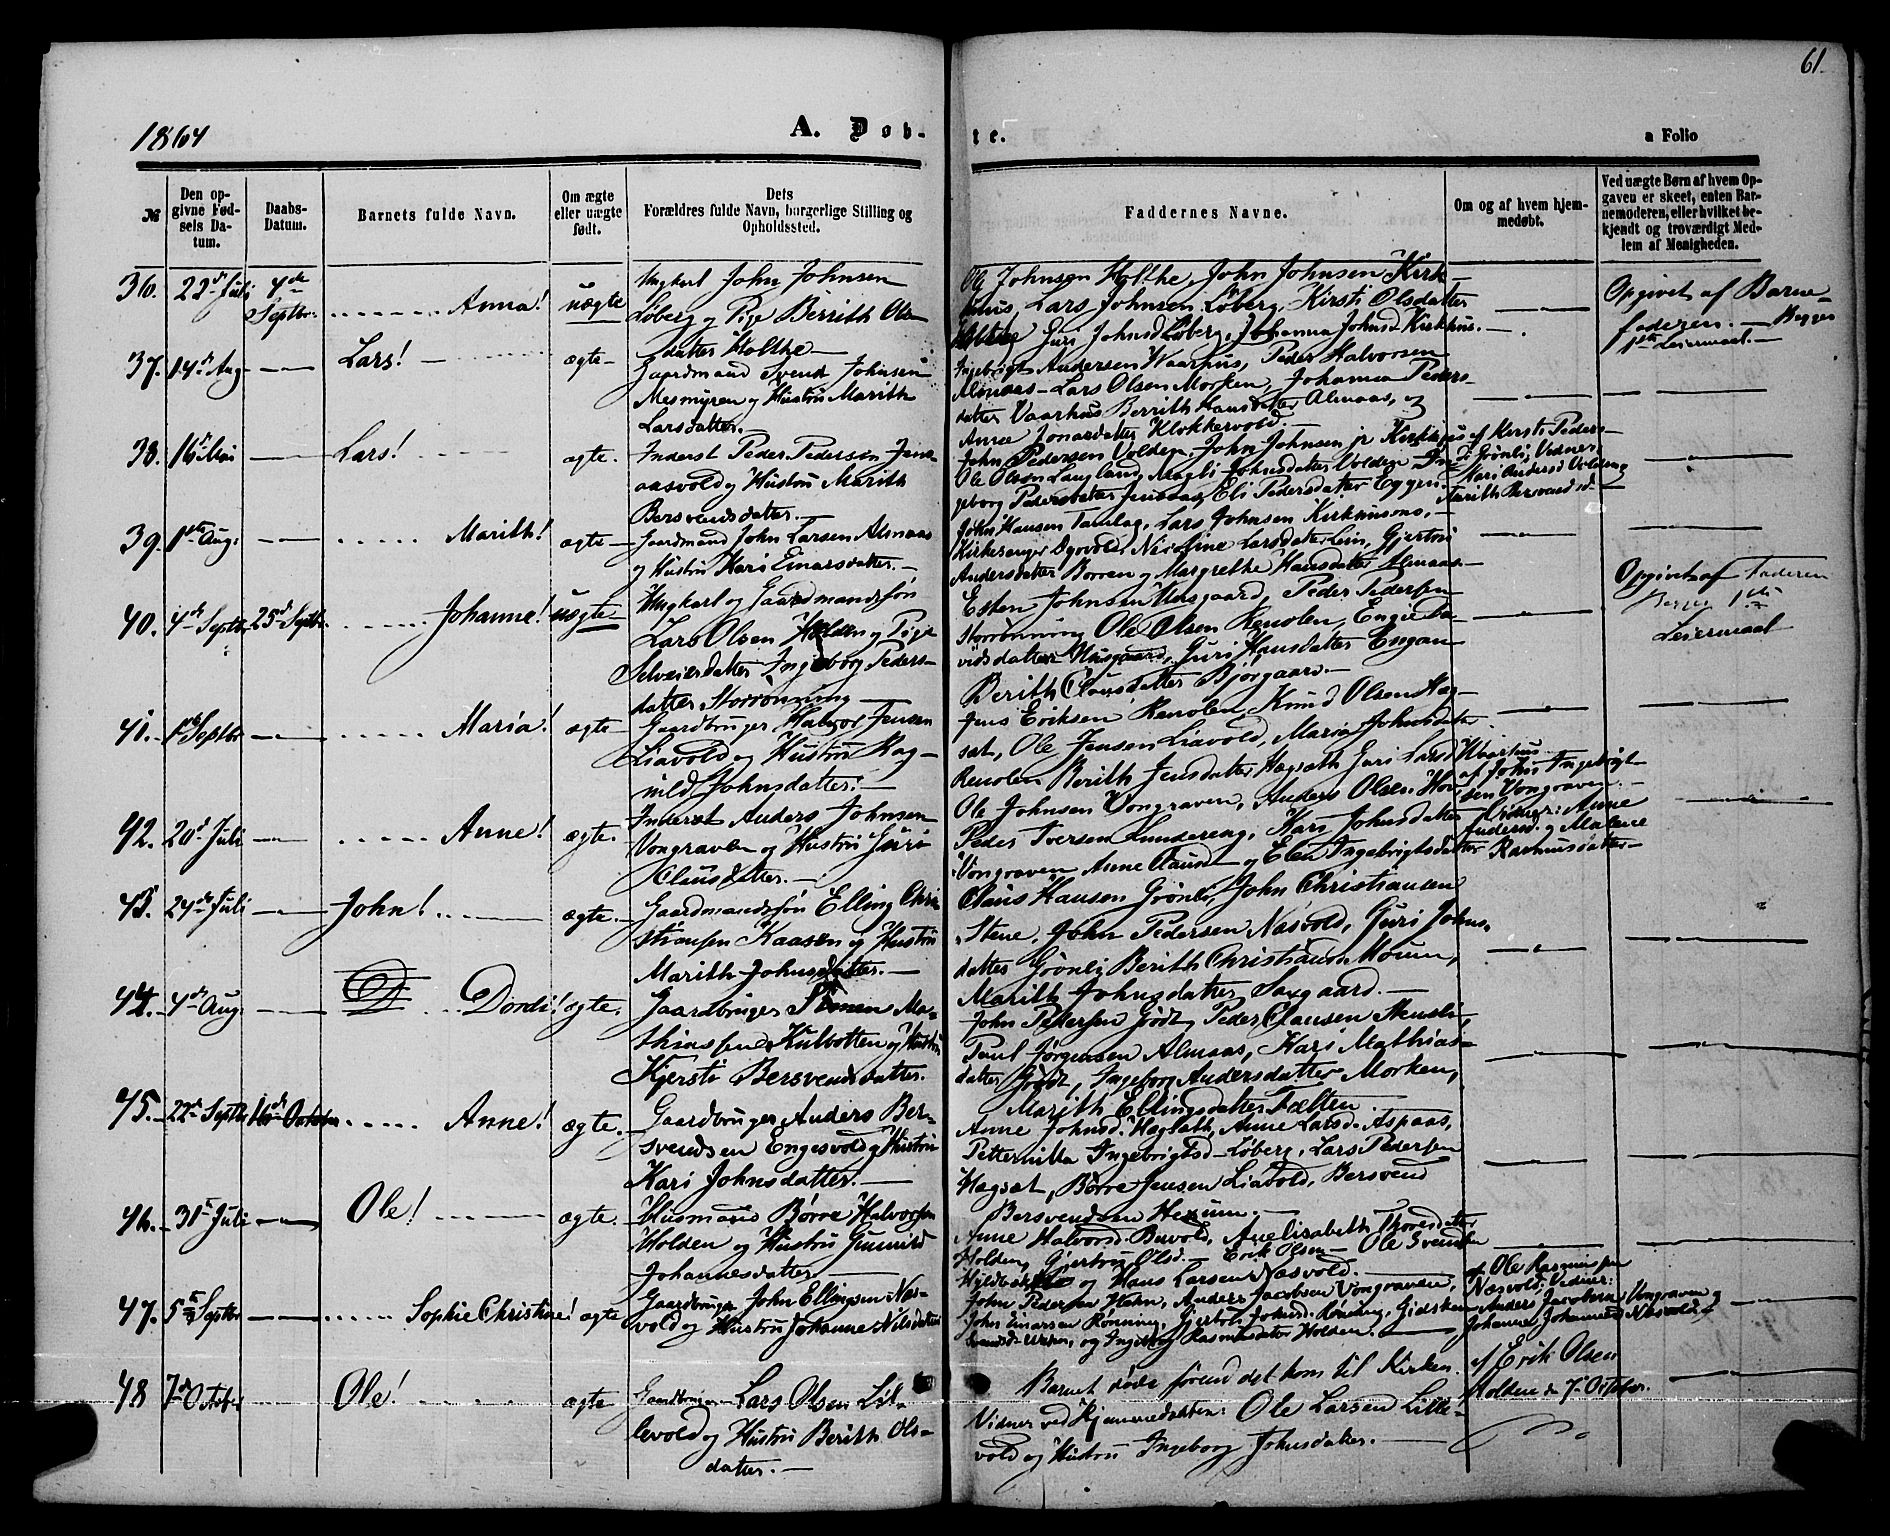 61.
1864
A. Døb-
te.
a Folio
№
Den op-
givne Fød-
sels Da-
tum.
Daabs-
Datum.
Barnets fulde Navn.
Om ægte
eller uægte
født.
Dets
Forældres fulde Navn, borgerlige Stilling og
Opholdssted.
Faddernes Navne.
Om og af hvem hjem-
medøbt.
Ved uægte Børn af hvem Op-
gaven er skeet, enten Bar-
nemoderen, eller hvilket be-
kjendt og troværdigt Med-
lem af Menigheden.
36. 22d Juli 4de Septbr. Anna! uægte
Ungkarl John Johnsen
Løberg og Pige Berrith Ols-
datter Holthe
Ole Johnsen Holthe, John Johnsen Kirk-
huus, Lars Johnsen Løberg, Kirsti Olsdatter
Holthe Guri Johnsd Løberg, Johanna Johnsd Kirkhus.
Opgivet af Barne-
faderen. — Begges
1ste Leiermaal.
37. 14d Aug. Lars! ægte
Gaardmand Svend Johnsen
Mesmyren og Hustru Marith
Larsdatter.
Ingebrigt Andersen Waarhus, Peder Halvorsen
Almaas - Lars Olsen Morken, Johanna Peders-
datter Vaarhus Berrith Hansdatter Almaas, og
Anne Jonasdatter Klokkervold.
38. 16d Mai Lars! ægte.
Inderst Peder Pedersen Jens-
aasvold og Hustru Marith
Bersvendsdatter.
John Pedersen Volden, John Johnsen jr Kirkhus
Ole Olsen Langland, Magli Johnsdatter Volden In-
geborg Pedersdatter Jensaas, Eli Pedersdatter Eggen.
af Kersti Peders-
d Grønli, Vidner
Mari Andersd Volden og
Marith Bersvendsd.
39. 1ste Aug. Marith! ægte
Gaardmand John Larsen Almaas
og Hustru Kari Einarsdatter.
John Hansen Tamlag, Lars Johnsen Kirkhusmo,
Kirkesanger Dyrvold, Nicoline Larsdatter Lein, Gjertru
Andersdatter Borren og Margrethe Hansdatter Almaas.
40. 4d Septbr 25d Septbr. Johanne! uægte
Ungkarl og Gaardmandssøn
Lars Olsen Holden og Pige
Selveierdatter Ingeborg Peders-
datter Storrønning
Esten Johnsen Husgaard, Peder Pedersen
Storrønning Ole Olsen Renolen, Engie Da-
vidsdatter Husgaard, Guri Hansdatter Engan
Berith Clausdatter Bjørgaard.
Opgivet af Faderen
Begges 1ste
Leiermaal
41. 1ste Septbr Maria! ægte
Gaardbruger Halvor Jensen
Liavold og Hustru Rag-
nild Johnsdatter.
Jens Eriksen Renolen Knud Olsen Hag-
sæt, Ole Jensen Liavold, Maria Johnsdatter
Renolen Berith Jensdatter Hægsæth Guri Larsd Waarhus
42. 20d Juli Anne! ægte.
Inderst Anders Johnsen
Vongraven og Hustru Guri
Clausdatter.
Ole Johnsen Vongraven, Anders Olsen Hov
Peder Iversen Lundereng, Kari Johnsdatter
Vongraven Anne Clausd og Elen Ingebrigtsdatter
af John Ingebrigt-
sen Vongraven.
Vidner: Anne
Andersd. og Malene
Rasmusdatter
43. 24d Juli John! ægte.
Gaardmandssøn Elling Chri-
stiansen Kaasen og Hustru
Marith Johnsdatter.
Claus Hansen Grønli, John Christiansen
Stene, John Pedersen Næsvold, Guri Johns-
datter Grønli Berith Christiansd Moum,
Marith Johnsdatter Saxgaard.
44. 4d Aug. Dordi! ægte.
Gaardbruger Simen Ma-
thiassen Kulbotten og Hustru
Kjersti Bersvendsdatter.
John Pedersen Grødt, Peder Clausen Stensli,
Paul Jørgensen Almaas, Kari Mathias-
datter Grødt, Ingeborg Andersdatter Morken,
Marith Ellingsdatter Tælten.
45. 22d Septbr 16d October Anne! ægte.
Gaardbruger Anders Ber-
svendsen Engesvold og Hustru
Kari Johnsdatter.
Anne Johnsd. Hagsæth, Anne Larsd. Aspaas,
Petternilla Ingebrigtsd Løberg, Lars Pedersen
Hagsæt, Børre Jensen Liavold, Bersvend
Bersvendsen Hexum.
46. 31d Juli Ole! ægte.
Husmand Børre Halvorsen
Holden og Hustru Gunnild
Johannesdatter
Anne Halvorsd. Buvold, Ane Elisabeth Thoresdatter
Holden, Gjertru Olsd. Erik Olsen Ole Svendsen
og Hans Larsen Næsvold.
47. 5te Septbr Sophie Christine! ægte
Gaardbruger John Ellingsen Næs-
vold og Hustru Johanne Nilsdatter
John Pedersen Hahn, Anders Jacobsen Vongraven,
John Einarsen Rønning, Gjertru Johnsd. Rønning,
og Ingeborg Rasmusdatter Holden.
af Ole Rasmussen
Næsvold. Vidner:
Anders Jacobsen Vongraven og
Johanne Johannesd Næsvold.
48 7d October Ole! ægte
Gaardbruger Lars Olsen Lil-
levold og Hustru Berith Ols-
datter.
Barnet døde førend det kom til Kirken.
Vidner ved Hjemmedaaben: Ole Larsen Lille-
vold og Hustru Ingeborg Johnsdatter.
af Erik Olsen
Holden d 7 October.